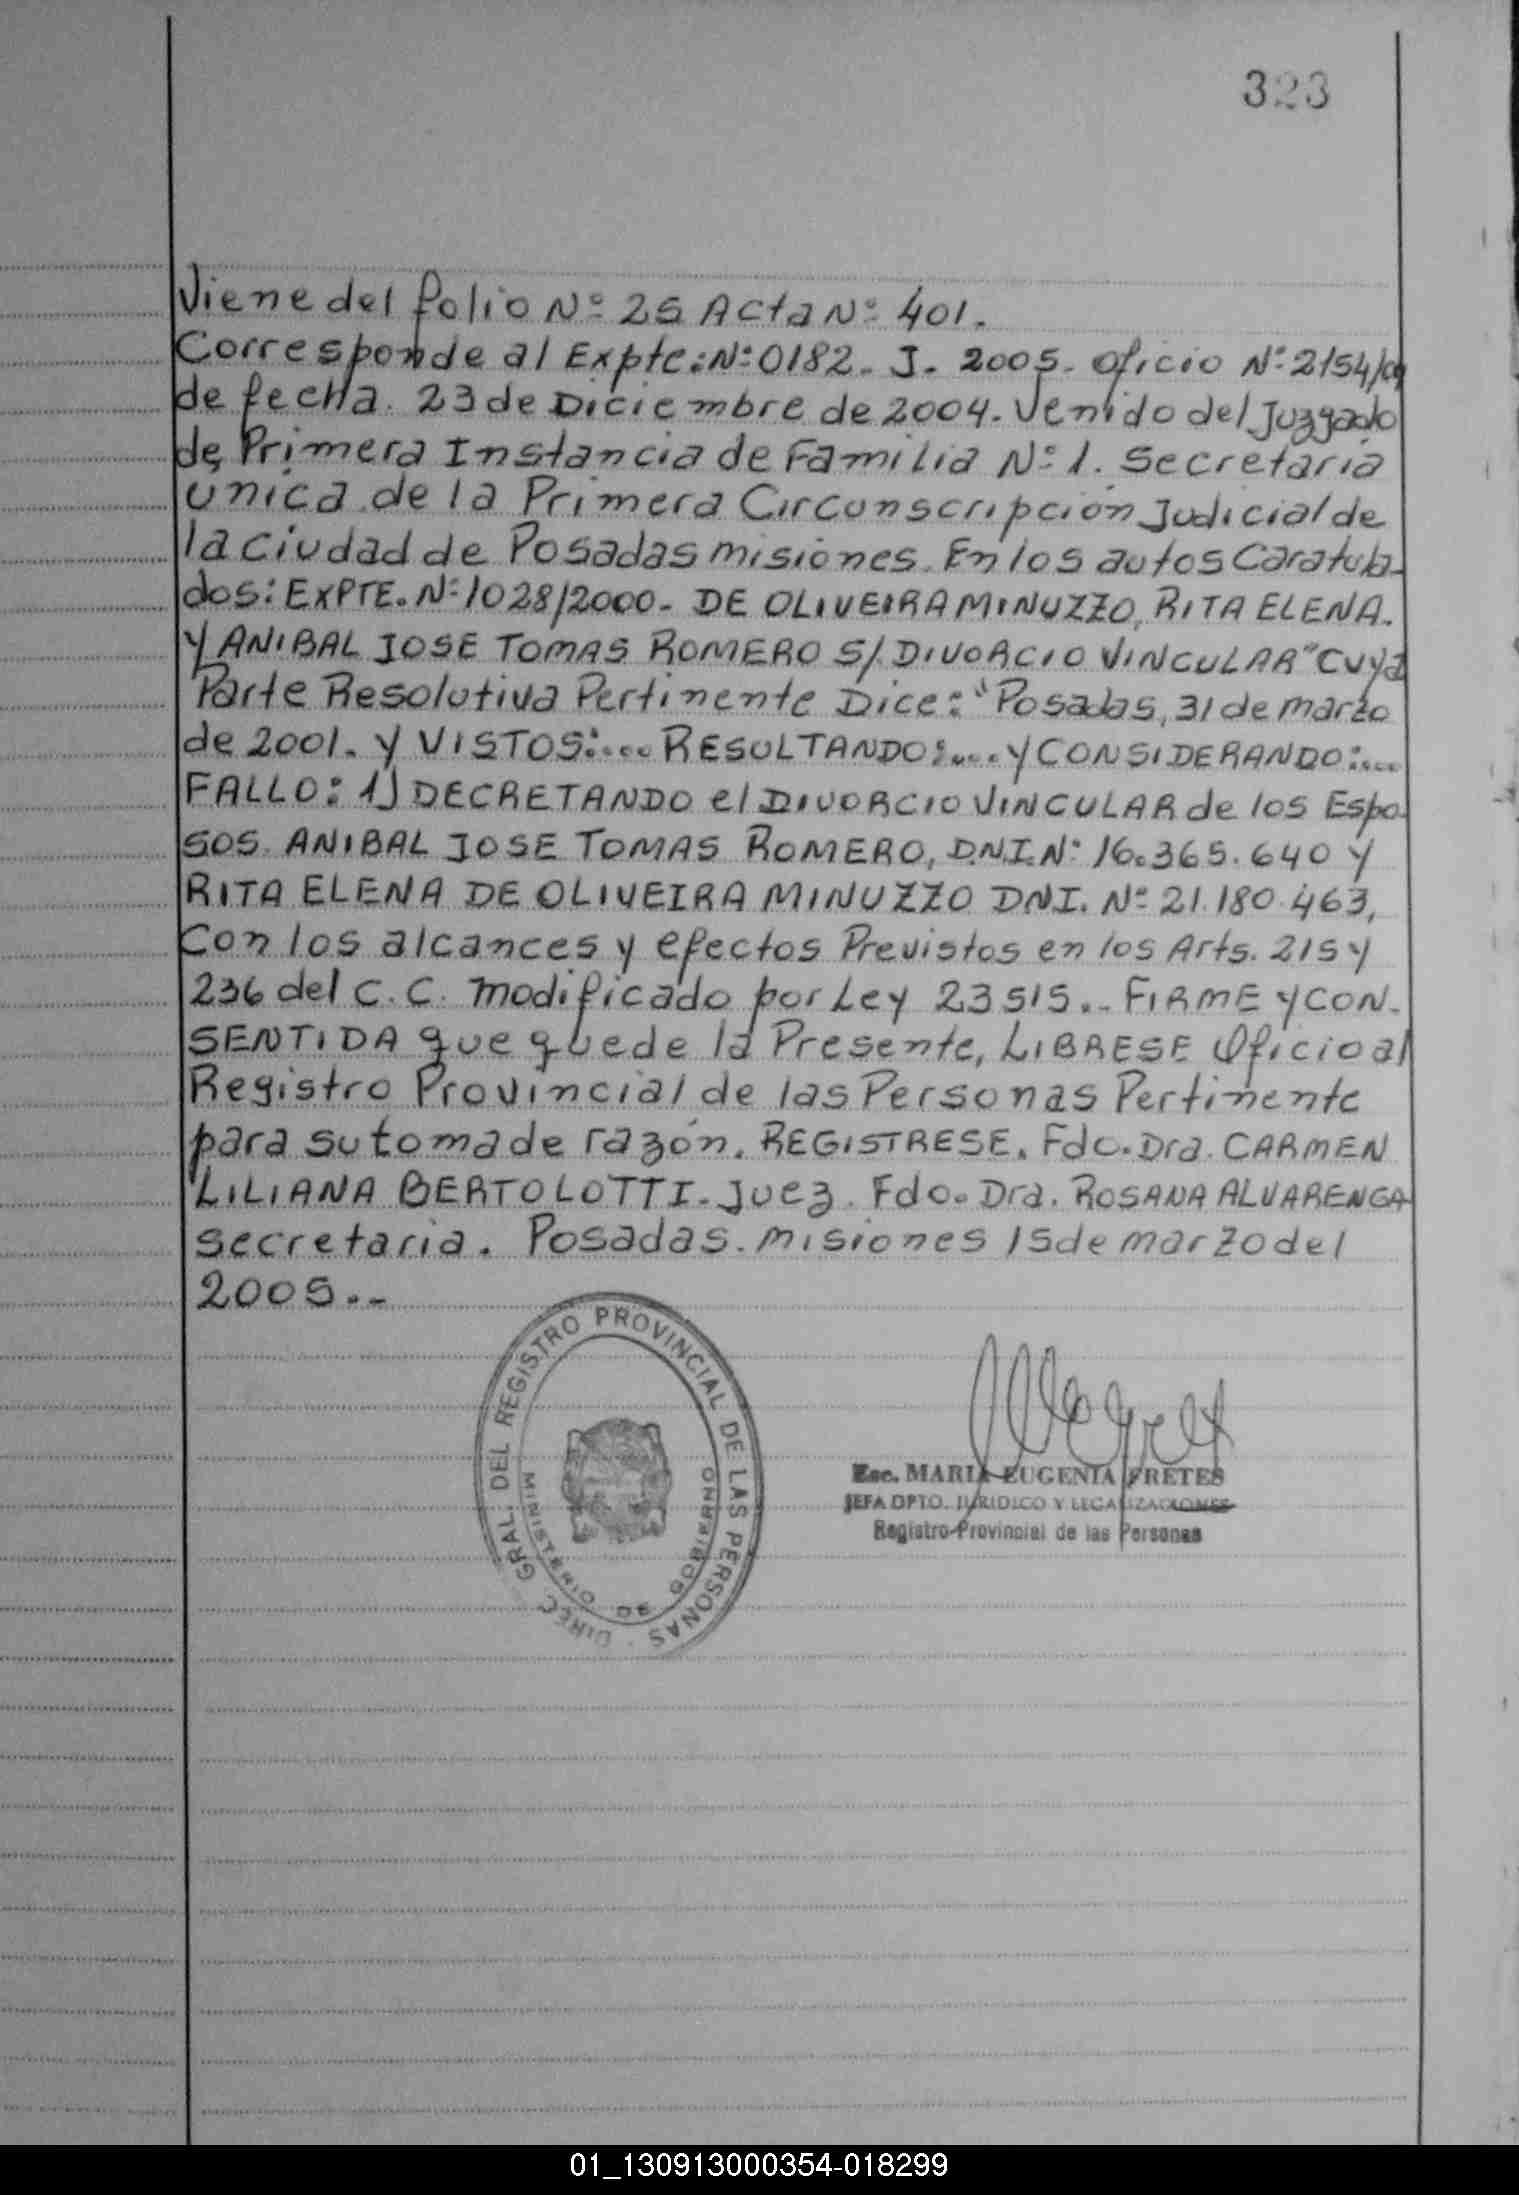 323
Viene del folio Nº 25 Acta Nº 401.
Corresponde al Expte: Nº 0182. J. 2005. oficio Nº 2154/04
de fecha. 23 de Diciembre de 2004. Venido del Juzgado
de Primera Instancia de Familia Nº 1. Secretaria
Unica de la Primera Circunscripción Judicial de
la Ciudad de Posadas misiones. En los autos Caratula-
dos: EXPTE. Nº 1028/2000. DE OLIVEIRA MINUZZO, RITA ELENA.
Y ANIBAL JOSE TOMAS ROMERO S/ DIVORCIO VINCULAR" Cuya
Parte Resolutiva Pertinente Dice: "Posadas, 31 de marzo
de 2001. Y VISTOS:.... RESULTANDO:.... Y CONSIDERANDO:....
FALLO: 1) DECRETANDO el DIVORCIO VINCULAR de los Espo-
SOS. ANIBAL JOSE TOMAS ROMERO, D.N.I. Nº 16.365.640 Y
RITA ELENA DE OLIVEIRA MINUZZO DNI. Nº 21.180.463,
Con los alcances y efectos Previstos en los Arts. 215 y
236 del C.C. modificado por Ley 23515.- FIRME Y CON-
SENTIDA que quede la Presente, LIBRESE Oficio al
Registro Provincial de las Personas Pertinente
para su toma de razón. REGISTRESE. Fdo. Dra. CARMEN
LILIANA BERTOLOTTI. Juez. Fdo. Dra. ROSANA ALVARENGA
secretaria. Posadas. misiones 15 de marzo del
2005.-
DIREC. GRAL. DEL REGISTRO PROVINCIAL DE LAS PERSONAS
MINISTERIO DE GOBIERNO
Esc. MARIA EUGENIA FRETES
JEFA DPTO. JURIDICO Y LEGALIZACIONES
Registro Provincial de las Personas
01_130913000354-018299